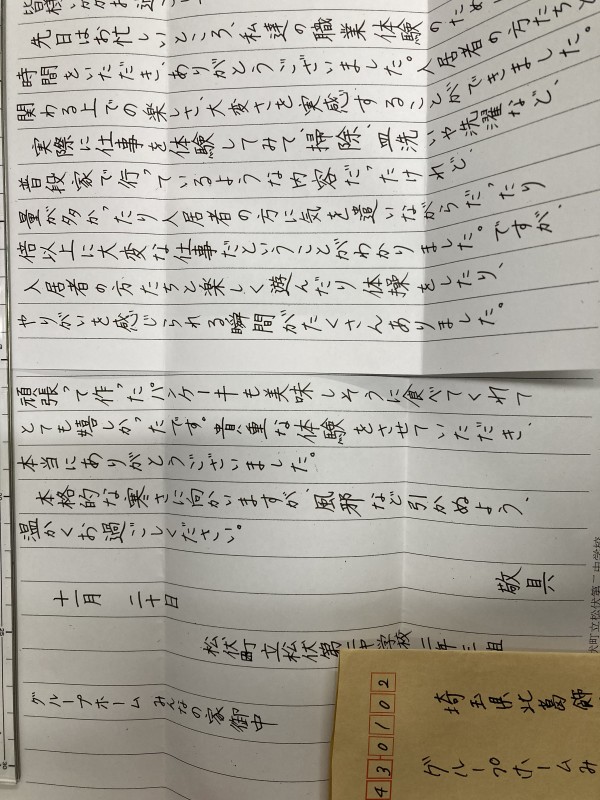 皆様いかがお過ご
先日はお忙しいところ、私達の職業体験のため
時間をいただき、ありがとうございました。入居者の方たちと
関わる上での楽しさ、大変さを実感することができました。
実際に仕事を体験してみて、掃除、皿洗いや洗濯など、
普段家で行っているような内容だったけれど
量が多かったり入居者の方に気を遣いながらだったり
倍以上に大変な仕事だということがわかりました。ですが、
入居者の方たちと楽しく遊んだり体操をしたり、
やりがいを感じられる瞬間がたくさんありました。
頑張って作ったパンケーキも美味しそうに食べてくれて
とても嬉しかったです。貴重な体験をさせていただき、
本当にありがとうございました。
本格的な寒さに向かいますが、風邪など引かぬよう、
温かくお過ごしください。
敬具
十一月 二十日
松伏町立松伏第二中学校 二年三組
グループホーム みんなの家 御中
伏町立松伏第二中学校
430102
埼玉県北葛飾
グループホームみ